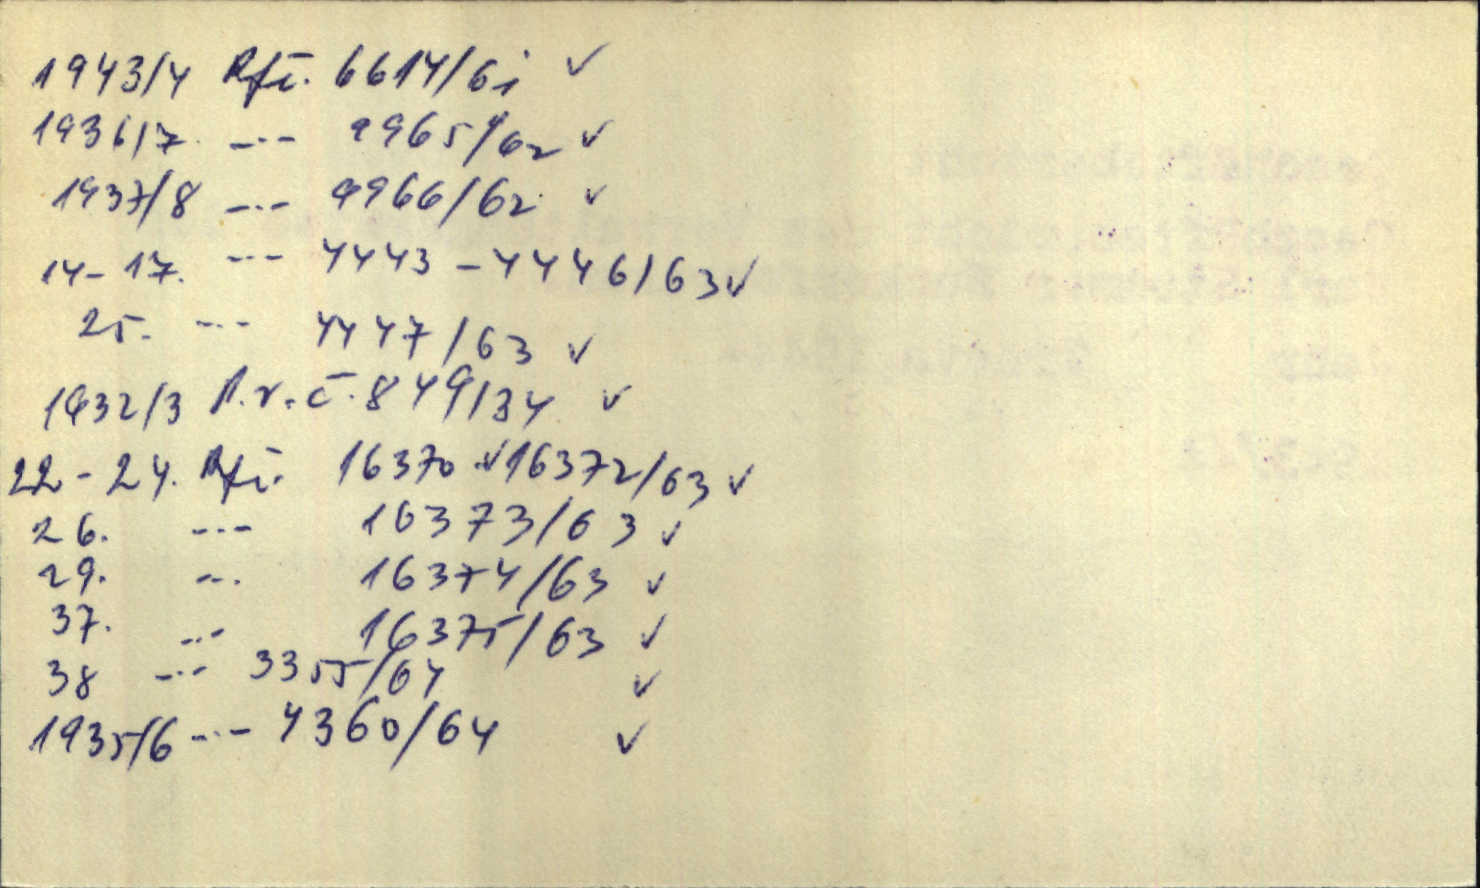 1943/4 Rfč. 6614/61 ✓
1936/7. -·- 9965/62 ✓
1937/8 -·- 9966/62 ✓
14-17. -·- 4443-4446/63 ✓
25. -·- 4447/63 ✓
1932/3 P.r.č. 849/34 ✓
22-24. Rfč. 16370 ✓ 16372/63 ✓
26. -·- 16373/63 ✓
29. -·- 16374/63 ✓
37. -·- 16375/63 ✓
38 -·- 3355/64 ✓
1935/6 -·- 4360/64 ✓